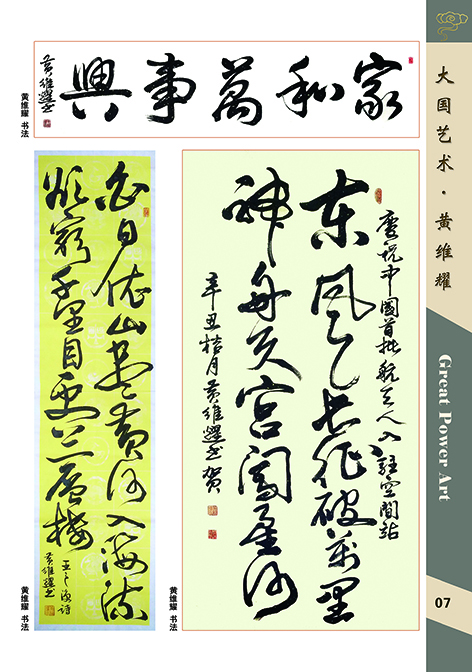 家和萬事興
黄维耀书
黄维耀 书法
白日依山尽黄河入海流
欲穷千里目更上一层楼
王之涣诗
黄维耀书
黄维耀 书法
慶祝中國首批航天人入駐空間站
东风长征破萬里
神舟天宫闯星河
辛丑桔月黄维耀书贺
黄维耀 书法
大国艺术·黄维耀
Great Power Art
07